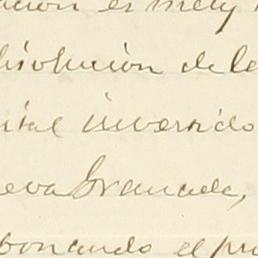 acion es muy
disolucion de la
ital invertido
eva Granada,
bonando el pr